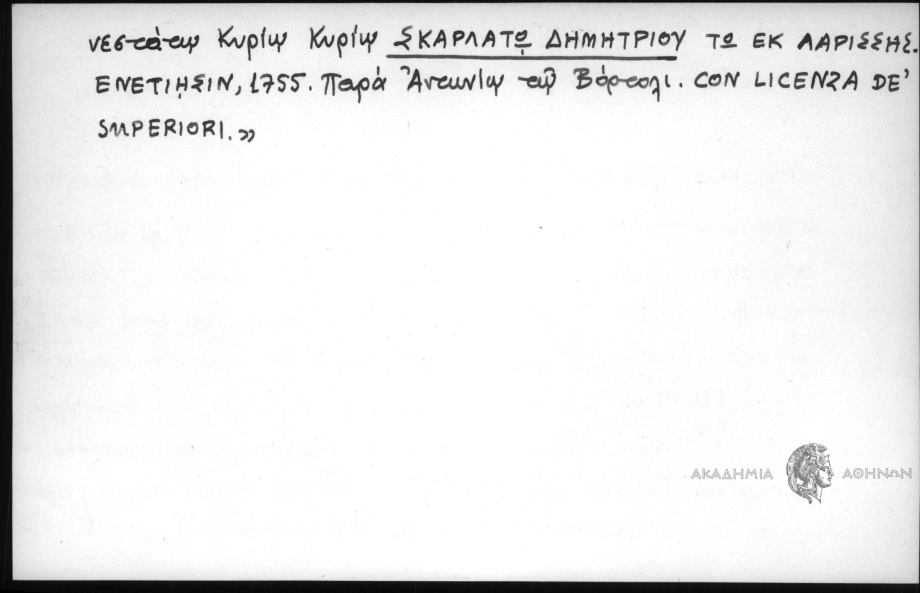 νεστάτῳ Κυρίῳ Κυρίῳ ΣΚΑΡΛΑΤῼ ΔΗΜΗΤΡΙΟΥ ΤΩ ΕΚ ΛΑΡΙΣΣΗΣ.
ΕΝΕΤΙῌΣΙΝ, 1755. Παρὰ Ἀντωνίῳ τῷ Βόρτολι. CON LICENZA DE'
SUPERIORI.»
ΑΚΑΔΗΜΙΑ ΑΘΗΝΩΝ